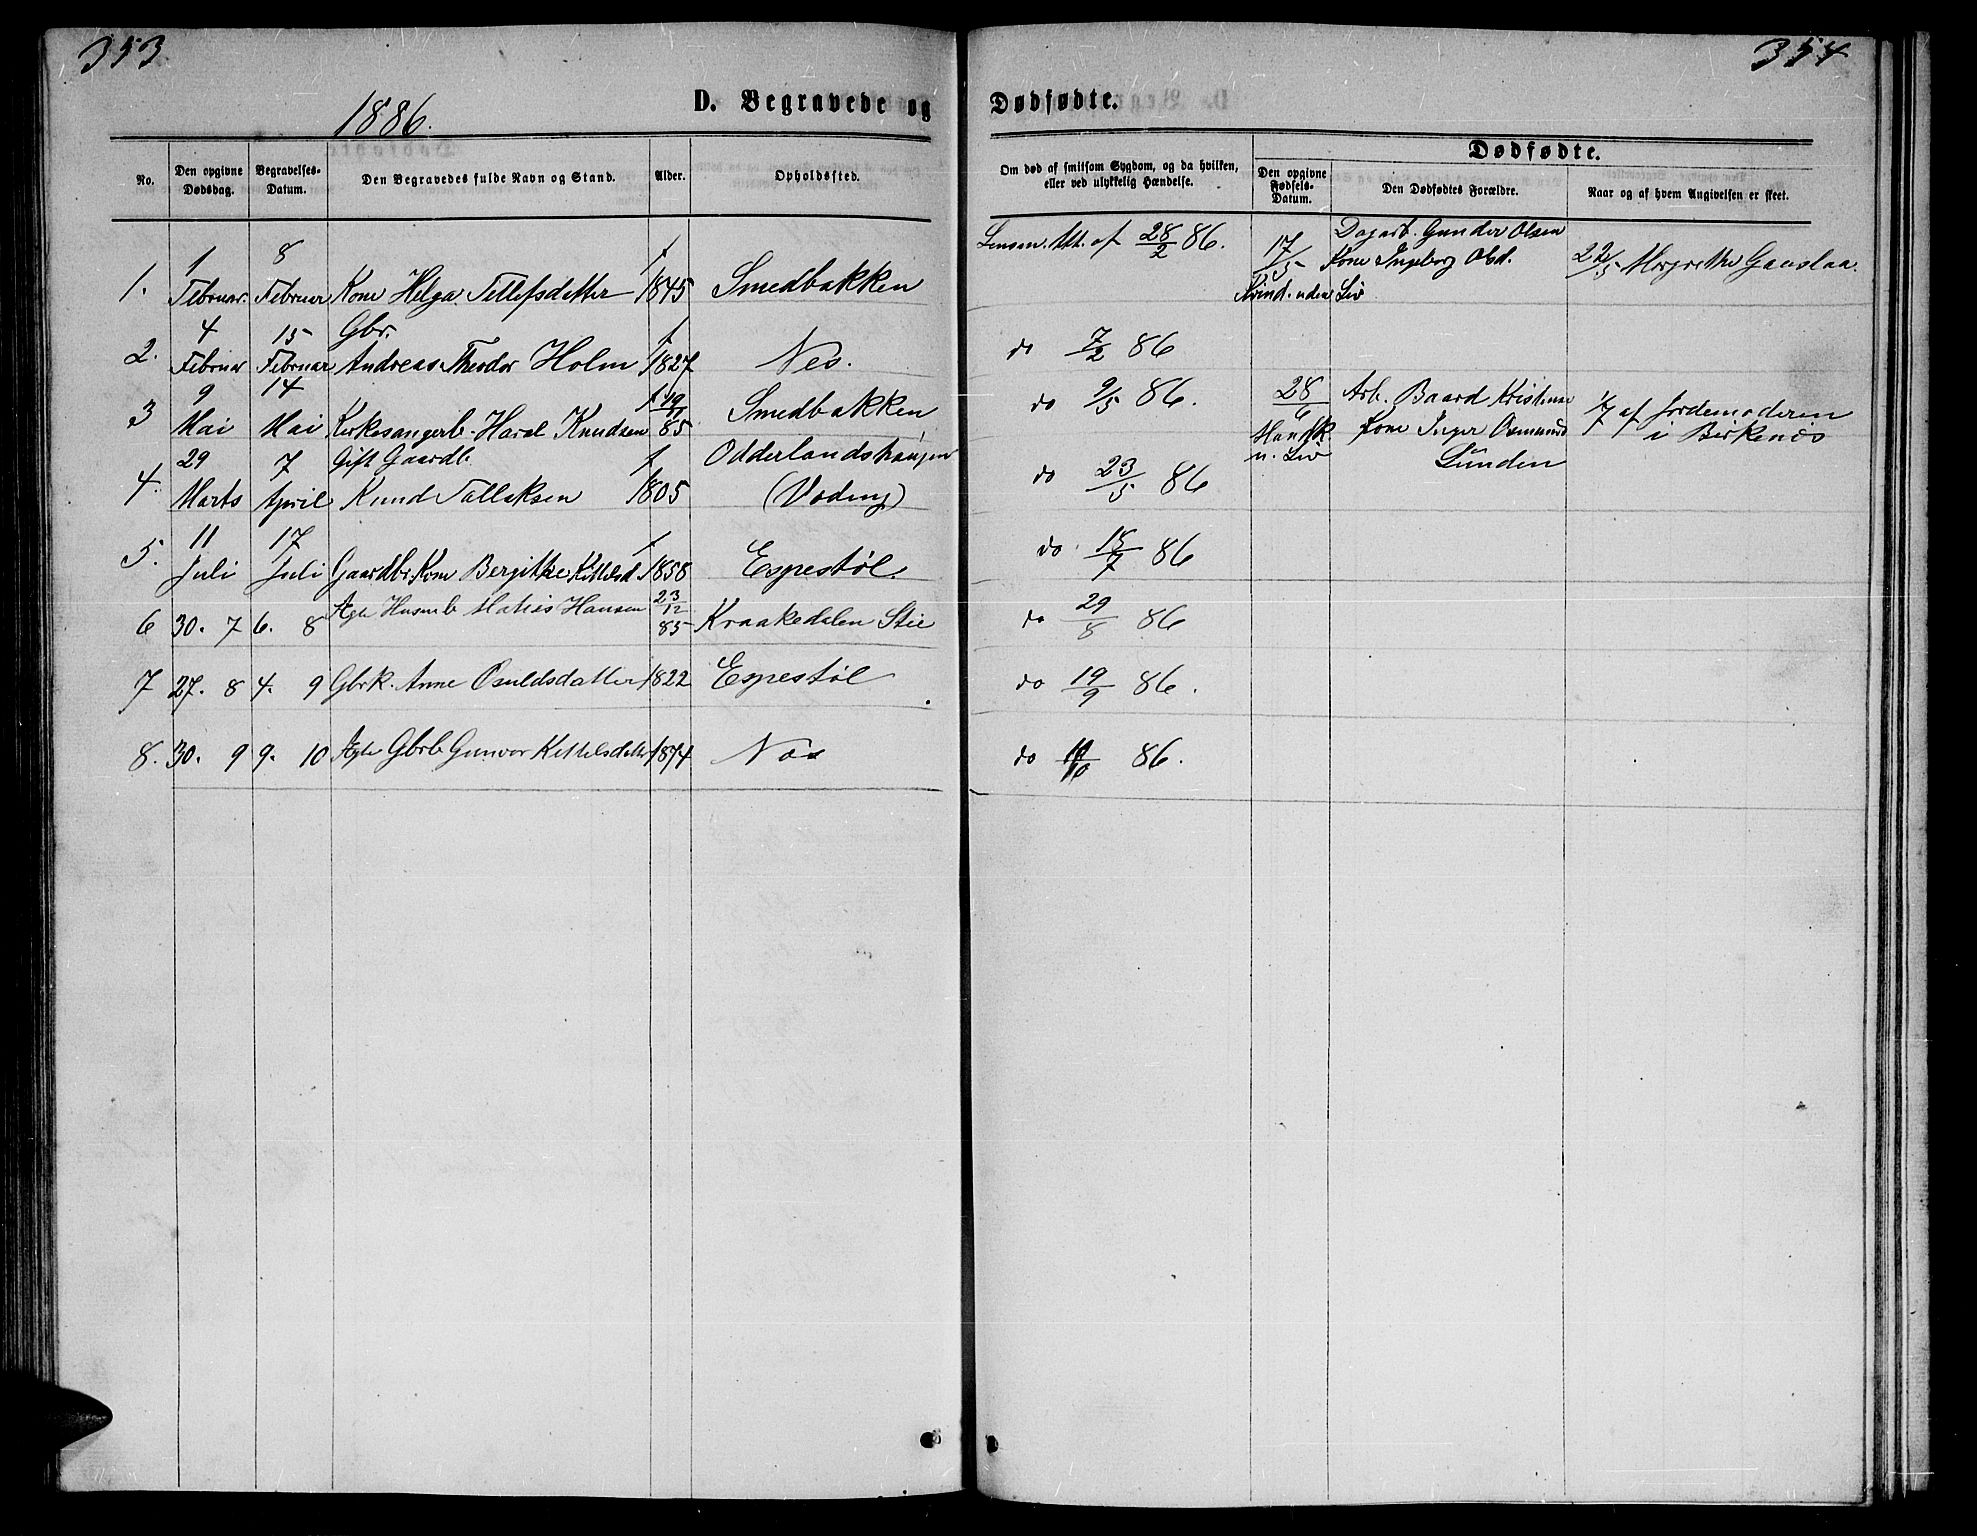 353
354
1886.
D. Begravede og
Dødfødte.
No.
Den opgivne Dødsdag.
Begravelses-Datum.
Den Begravedes fulde Navn og Stand.
Alder.
Opholdssted.
Om død af smitsom Sygdom, og da hvilken, eller ved ulykkelig Hændelse.
Dødfødte.
Den opgivne Fødsels-Datum.
Den Dødfødtes Forældre.
Naar og af hvem Angivelsen er skeet.
1. 1 Februar. 8 Februar Kone Helga Tellefsdatter 1845 Smedbakken
2. 4 Februar 15 Februar Gbr. Andreas Theodor Holm 1827 Nes.
3 9 Mai 14 Mai Kirkesangerb. Haral Knudsen 19/11 85 Smedbakken
4. 29 Marts 7 April Gift Gaardb. Knud Tallaksen 1805 Odderlandshaugen (Voding)
5. 11 Juli 17 Juli Gaardbr. Kone Bergitte Kittelsd. 1858 Espestøl
6 30. 7 6. 8 Ægte Husmb Matias Hansen 23/12 85 Kraakedalen Stie
7 27. 8 4. 9 Gbrk. Anne Osuldsdatter 1822 Espestøl
8. 30. 9 9. 10 Ægte Gbrb Gunvor Kittelsdatter 1874 Nes
Lensm. Att. af 28/2 86.
do 7/2 86
do 9/5 86.
do 23/5 86
do 18/7 86
do 29/8 86
do 19/9 86.
do /10 86.
17/5 Kvind. uden Liv
Dagarb. Gunder Olsen
Kone Ingeborg Olsd.
22/5 Margrethe Gauslaa.
28/6 Hank. u. Liv
Arb. Baard Kristense
Kone Inger Osmunds
Lunden
1/7 af Jordemoderen
i Birkenes